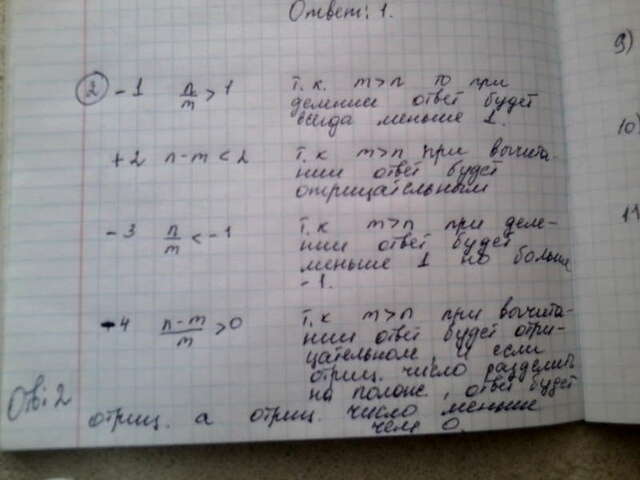 Ответ: 1.
9)
2 - 1 n/m > 1 т.к. m>n то при
делении ответ будет
всегда меньше 1.
10)
+ 2 n-m < 2 т.к m>n при вычита-
нии ответ будет
отрицательным
11
- 3 n/m < -1 т.к m>n при деле-
нии ответ будет
меньше 1 но больше
-1.
- 4 n-m/m > 0 т.к m>n при вычита-
нии ответ будет отри-
цательном, и если
отриц. число разделить
на полож., ответ будет
Отв: 2
отриц. а отриц. число меньше
чем 0.